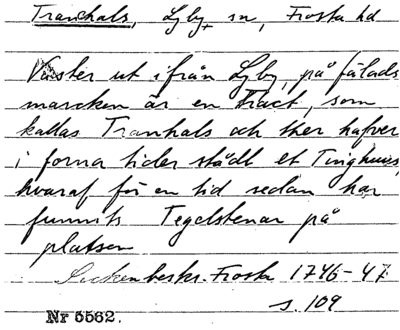 Tranehals, Ljby sn, Frosta hd
Väster ut ifrån Ljby, på fälads
marcken är en Tract, som
kallas Tranhals och ther hafver
i forna tider stådt et Tinghuus,
hvaraf för en tid sedan har
funnits Tegelstenar på
platsen
Sockenbeskr. Frosta 1746-47.
s. 109
Nr 5562.